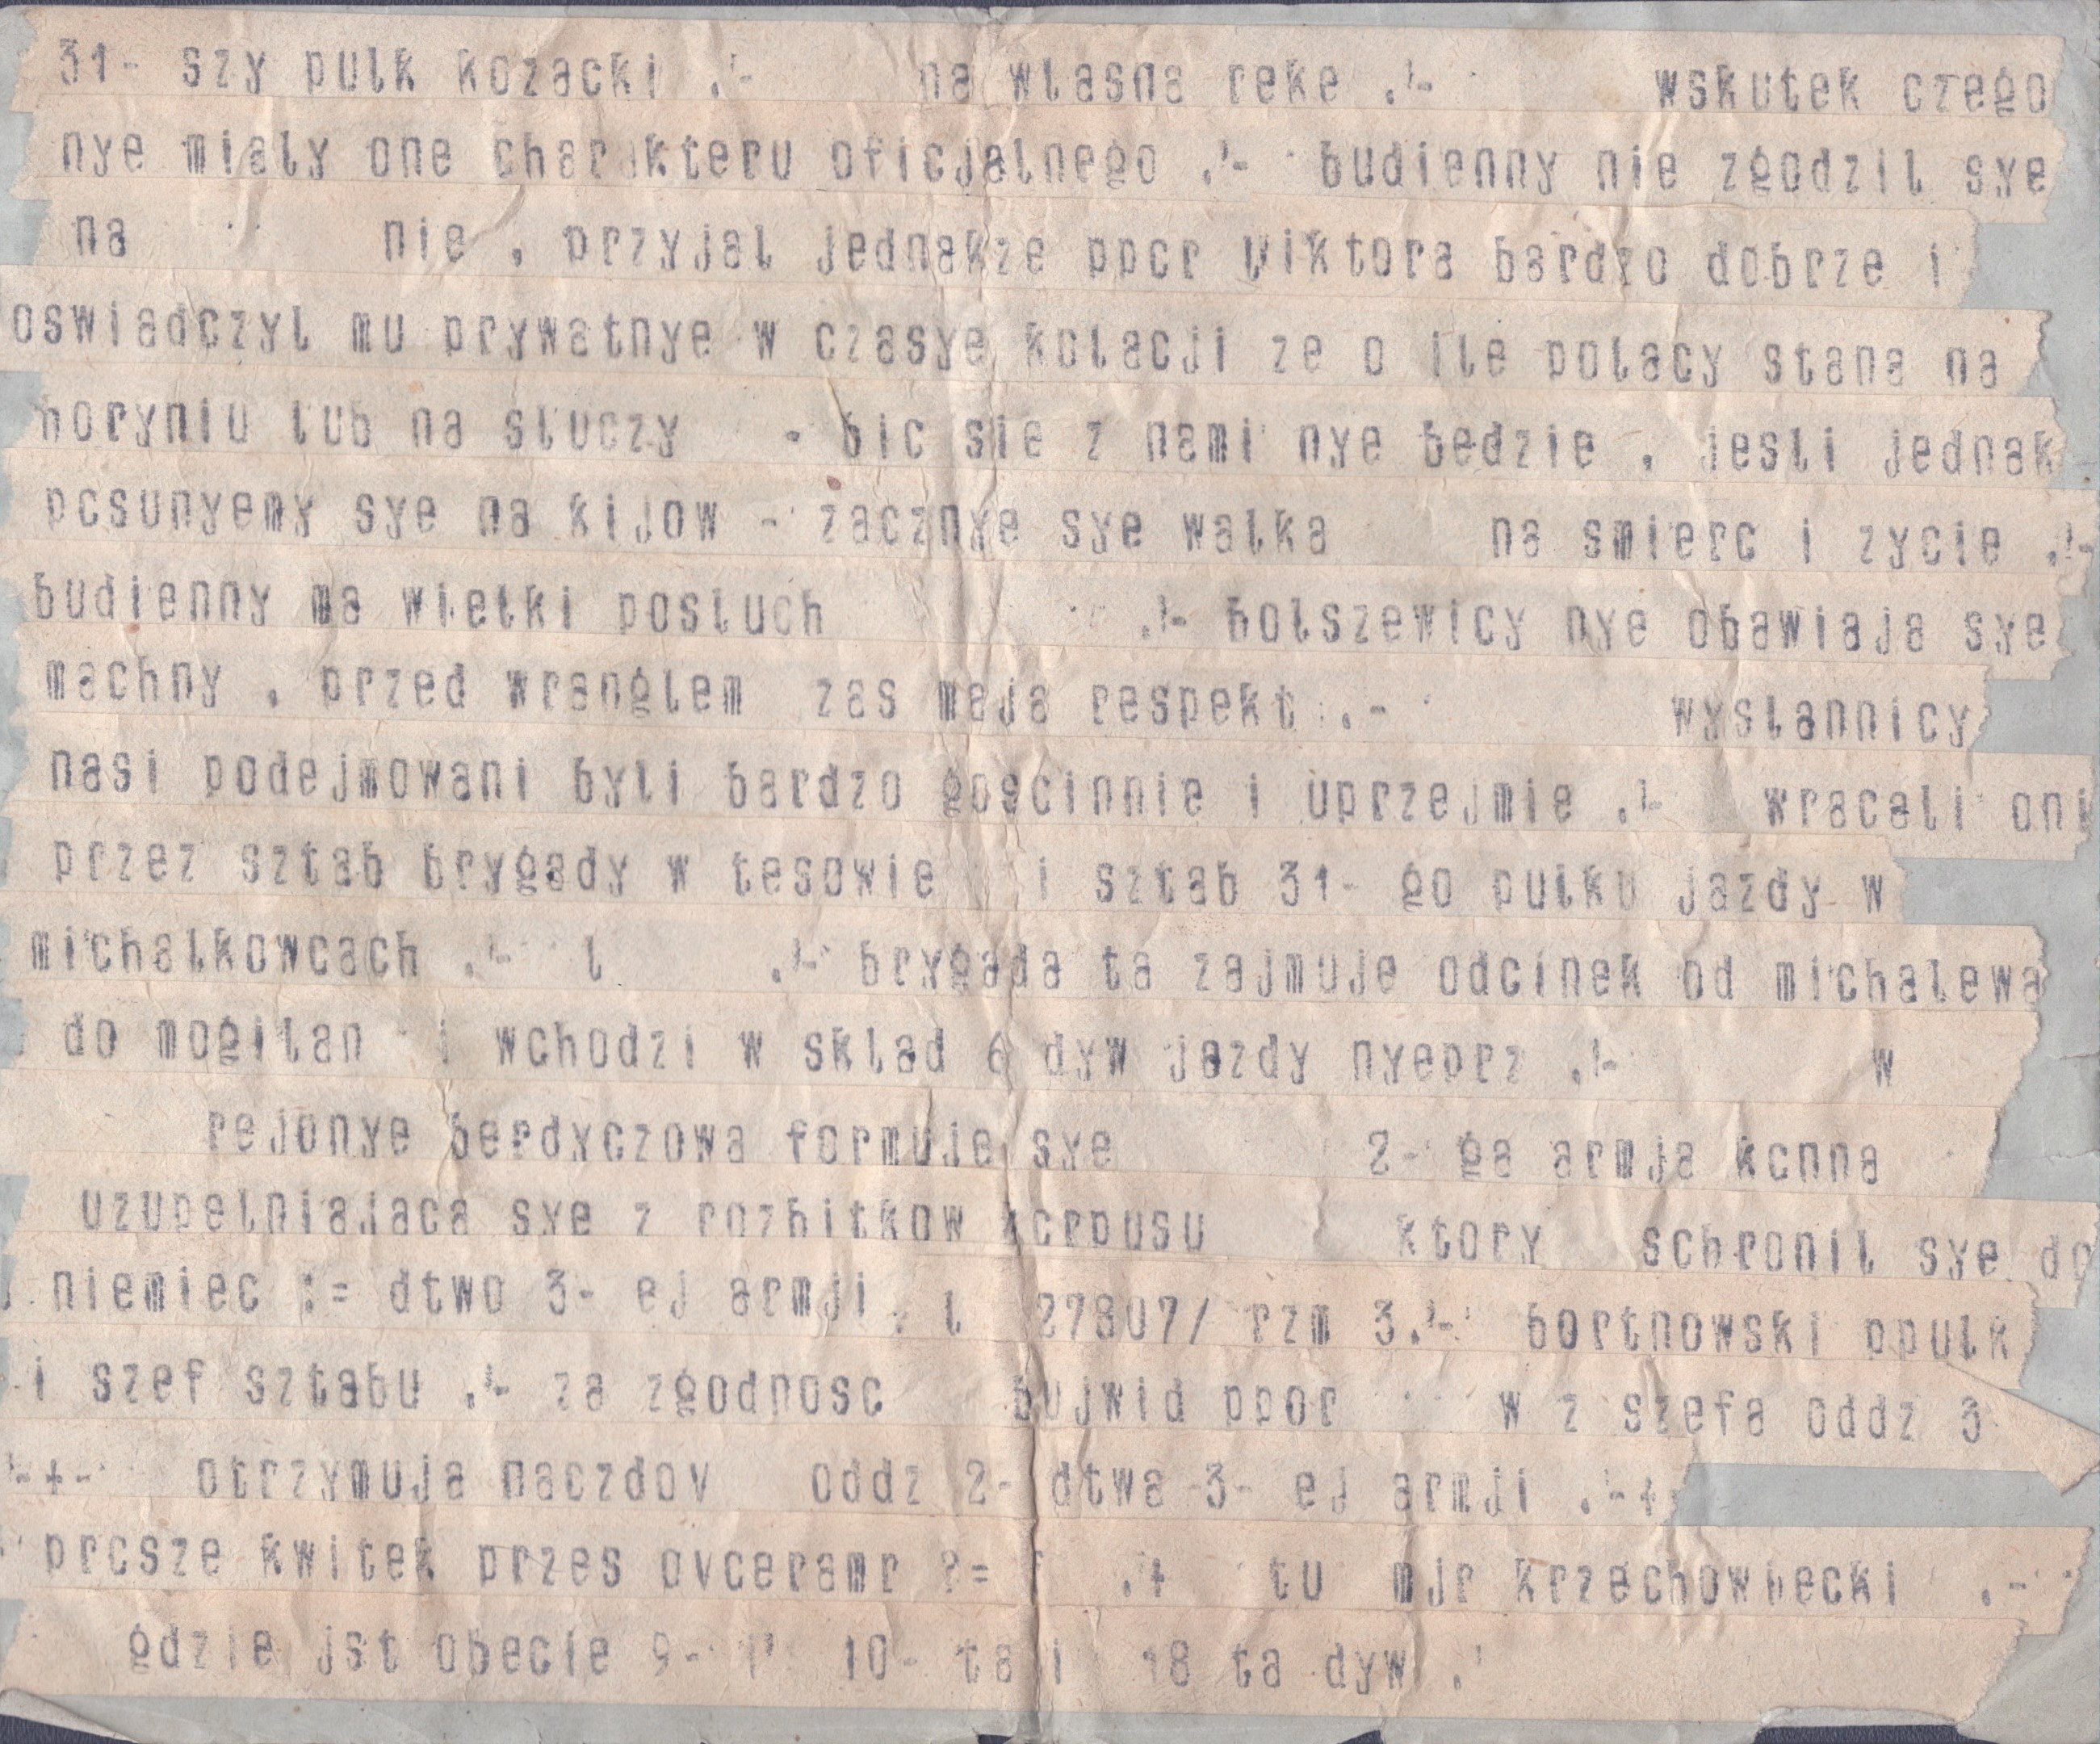 31- szy pulk kozacki .- na wlasna reke .- wskutek czego
nye mialy one charakteru oficjalnego .- budienny nie zgodzil sye
na nie , przyjal jednakze ppcr wiktora bardzo dobrze i
oswiadczyl mu prywatnye w czasye kolacji ze o ile polacy stana na
horyniu lub na sluczy - bic sie z nami nye bedzie , jesli jednak
pcsunyemy sye na kijow - zacznye sye walka na smierc i zycie .-
budienny ma wielki posluch .- bolszewicy nye obawiaja sye
machny , przed wranglem zas maja respekt .- wyslannicy
nasi podejmowani byli bardzo goscinnie i uprzejmie .- wracali oni
przez sztab brygady w tesowie i sztab 31- go pulku jazdy w
michalkowcach .- l .- brygada ta zajmuje odcinek od michalewa
do mogilan i wchodzi w sklad 6 dyw jazdy nyeprz .- w
rejonye berdyczowa formuje sye 2- ga armja kcnna
uzupelniajaca sye z rozbitkow kcrpusu ktory schronil sye do
niemiec := dtwo 3- ej armji , l 27807/ rzm 3.- bortnowski ppulk
i szef sztabu .- za zgodnosc bujwid ppor w z szefa oddz 3
-+- otrzymuja naczdov oddz 2- dtwa 3- ej armji .-+
prcsze kwitek przes ovceramr ?= .+ tu mjr krzechowbecki .-
gdzie jst obecie 9- 10- ta i 18 ta dyw .